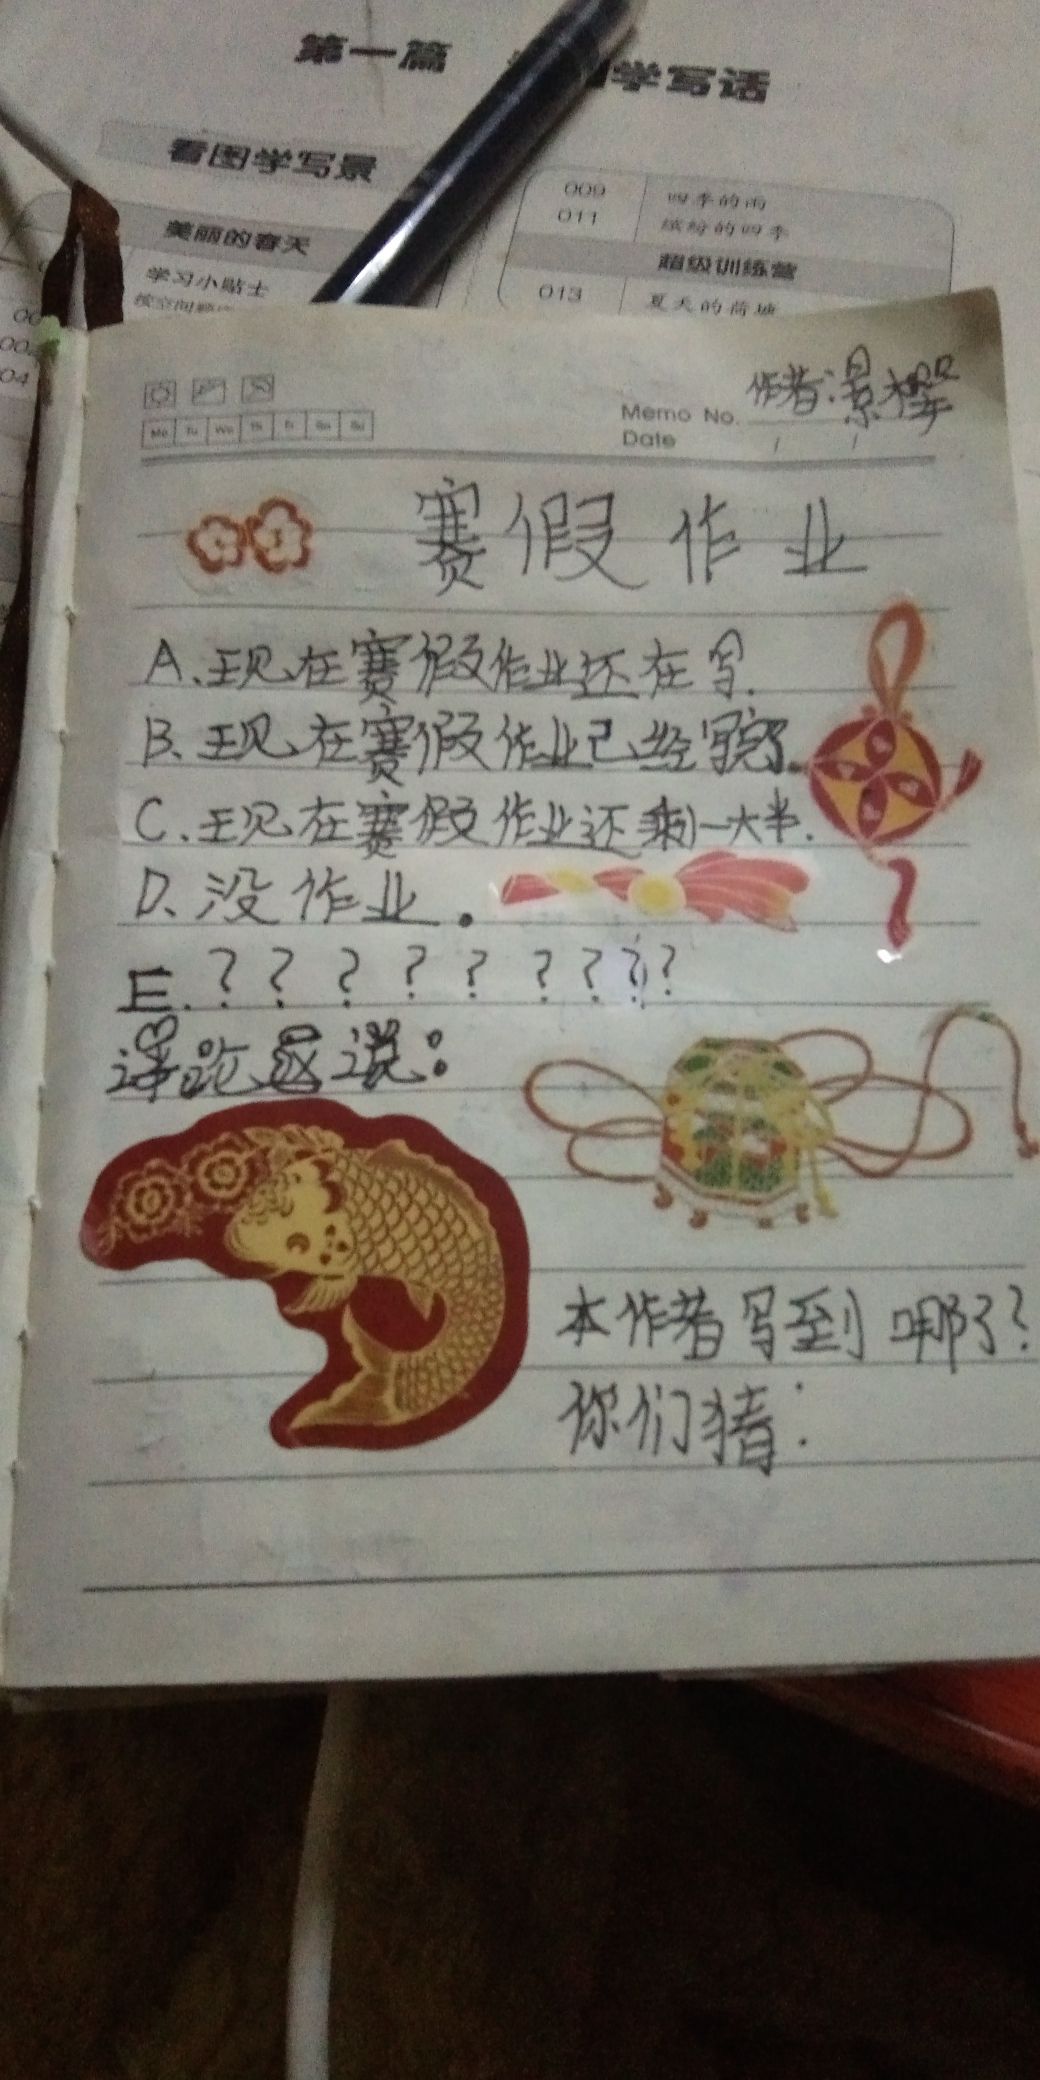 第一篇 学写话
看图学写景
美丽的春天
学习小贴士
009 四季的雨
011 缤纷的四季
超级训练营
013 夏天的荷塘
004
Memo No. 作者:景樱
Date / /
Mo Tu We Th Fr Sa Su
赛假作业
A.现在赛假作业还在写.
B.现在赛假作业已经写完了.
C.现在赛假作业还剩一大半.
D.没作业.
E.?????????
评论区说:
本作者写到哪了?
你们猜: